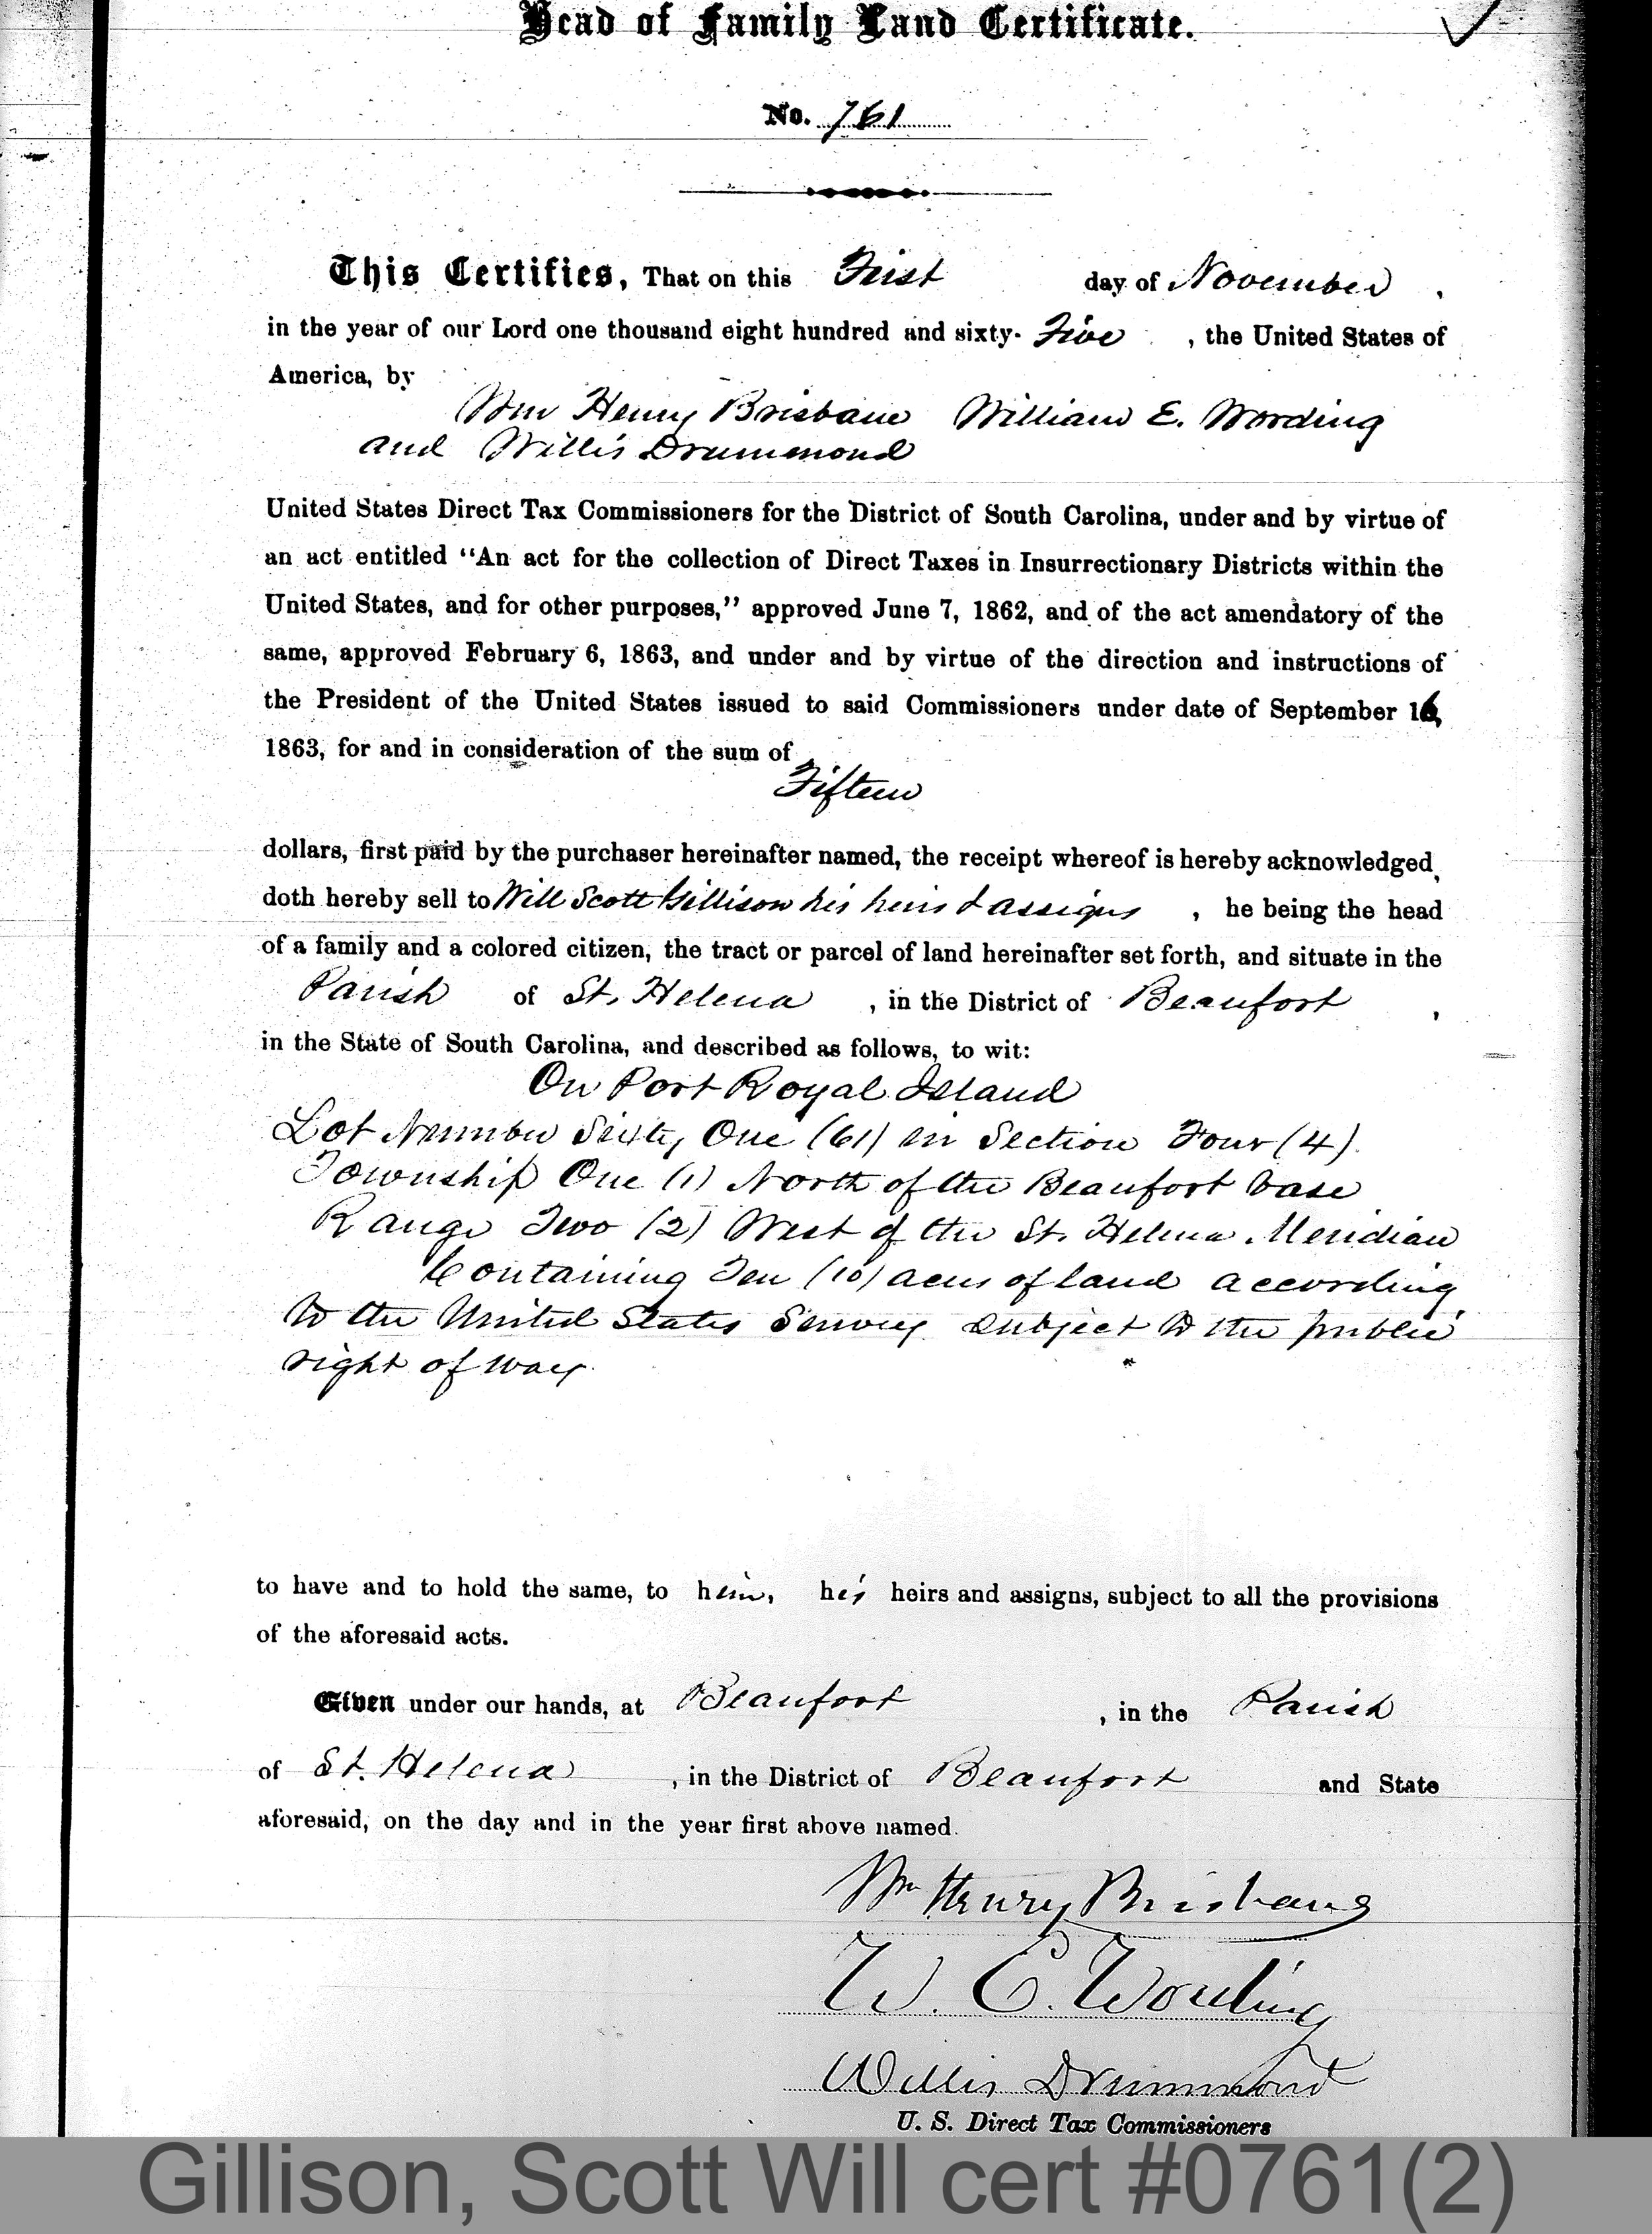 Head of Family Land Certificate.
No. 761
This Certifies, That on this First day of November,
in the year of our Lord one thousand eight hundred and sixty-Five, the United States of
America, by
Wm Henry Brisbane William E. Wording
and Willis Drummond
United States Direct Tax Commissioners for the District of South Carolina, under and by virtue of
an act entitled "An act for the collection of Direct Taxes in Insurrectionary Districts within the
United States, and for other purposes," approved June 7, 1862, and of the act amendatory of the
same, approved February 6, 1863, and under and by virtue of the direction and instructions of
the President of the United States issued to said Commissioners under date of September 16,
1863, for and in consideration of the sum of
Fifteen
dollars, first paid by the purchaser hereinafter named, the receipt whereof is hereby acknowledged,
doth hereby sell to Will Scott Gillison his heirs & assigns, he being the head
of a family and a colored citizen, the tract or parcel of land hereinafter set forth, and situate in the
Parish of St. Helena, in the District of Beaufort,
in the State of South Carolina, and described as follows, to wit:
On Port Royal Island
Lot Number Sixty One (61) in Section Four (4)
Township One (1) North of the Beaufort base
Range Two (2) West of the St. Helena Meridian
Containing Ten (10) acres of land according
to the United States Survey subject to the public
right of way.
to have and to hold the same, to him, his heirs and assigns, subject to all the provisions
of the aforesaid acts.
Given under our hands, at Beaufort, in the Parish
of St. Helena, in the District of Beaufort and State
aforesaid, on the day and in the year first above named.
Wm Henry Brisbane
W. E. Wording
Willis Drummond
U. S. Direct Tax Commissioners
Gillison, Scott Will cert #0761(2)